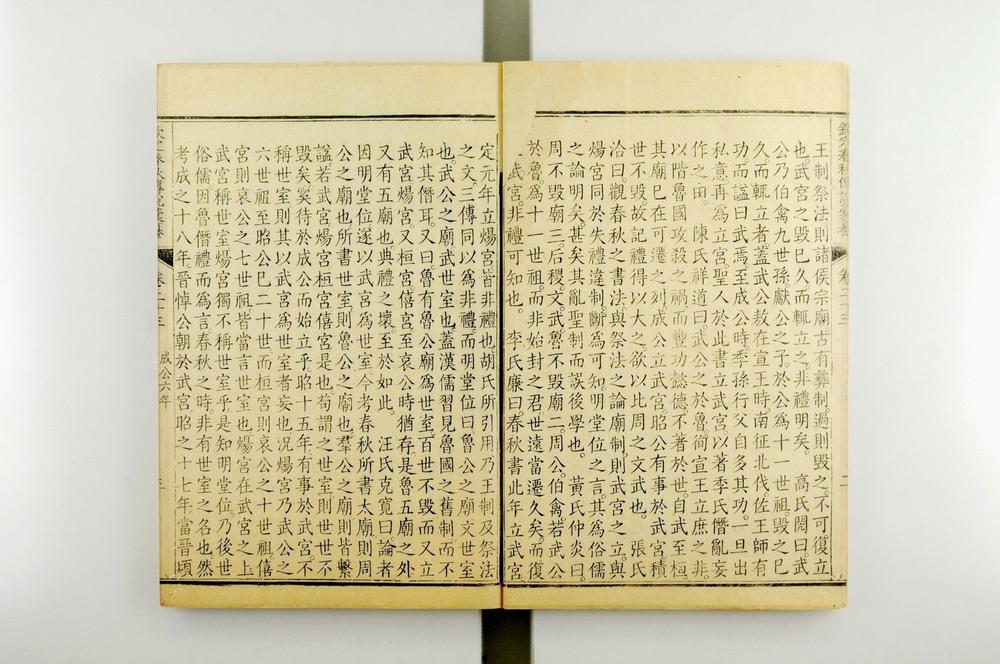 欽定春秋傳說彙纂 卷二十三 二
王制祭法則諸侯宗廟古有彝制過則毀之不可復立
也武宮之毀已久而輒立之非禮明矣 高氏閌曰武
公乃伯禽九世孫獻公之子於公為十一世祖毀之已
久而輒立者蓋武公敎在宣王時南征北伐佐王師有
功而諡曰武焉至成公時季孫行父自多其功一旦出
私意再為立宮聖人於此書立武宮以著季氏僭亂妄
作之由 陳氏祥道曰武公之於魯徇宣王立庶之非
以階魯國攻殺之禍而豐功懿德不著於世自武至桓
其廟已在可遷之列成公立武宮昭公有事於武宮積
世不毀故記禮得以大之欲以比周之文武也 張氏
洽曰觀春秋之書法與祭法之論廟制則武宮之立與
煬宮同於失禮違制斷為可知明堂位之言其為俗儒
之論明矣甚矣其亂聖制而誤後學也 黃氏仲炎曰
周不毀廟三后稷文武魯不毀廟二周公伯禽若武公
於魯為十一世祖而非始封之君世遠當遷久矣而復
武宮非禮可知也 李氏廉曰春秋書此年立武宮
定元年立煬宮皆非禮也胡氏所引用乃王制及祭法
之文三傳同以為非禮而明堂位曰魯公之廟文世室
也武公之廟武世室也蓋漢儒習見魯國之舊制而不
知其僭耳又曰魯有魯公廟為世室百世不毀而又立
武宮煬宮又桓宮僖宮至哀公時猶存是魯五廟之外
又有五廟也典禮之壞至於如此 汪氏克寬曰論者
因明堂位遂以武宮為世室今考春秋所書太廟則周
公之廟也所書世室則魯公之廟也羣公之廟則皆繫
諡若武宮煬宮桓宮僖宮是也苟謂之世室則世世不
毀矣奚待於成公而始立乎昭十五年有事於武宮不
稱世室則其以武宮為世室者妄也況煬宮乃武公之
六世祖至昭公已二十世而桓宮則哀公之十世祖僖
宮則哀公之七世祖皆當言世室也煬宮在武宮之上
武宮稱世室煬宮獨不稱世室乎是知明堂位乃後世
俗儒因魯僭禮而為言春秋之時非有世室之名也然
考成之十八年晉悼公朝於武宮昭之十七年當晉頃
欽定春秋傳說彙纂 卷二十三 成公六年 三